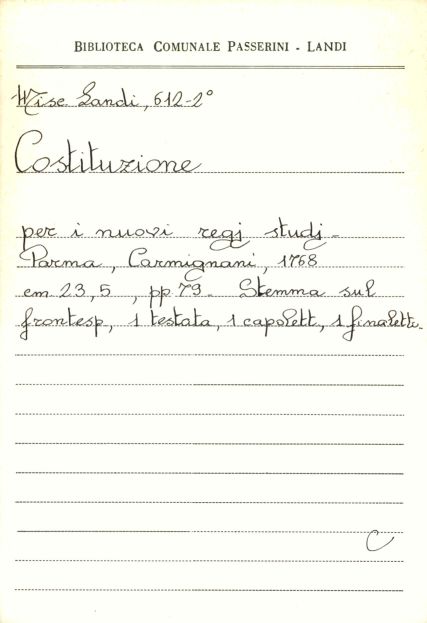 BIBLIOTECA COMUNALE PASSERINI - LANDI
Misc. Landi, 612-2°
Costituzione
per i nuovi regj studj -
Parma, Carmignani, 1768
cm 23,5 , pp. 79 - Stemma sul
frontesp, 1 testata, 1 capolett, 1 finalett.
C